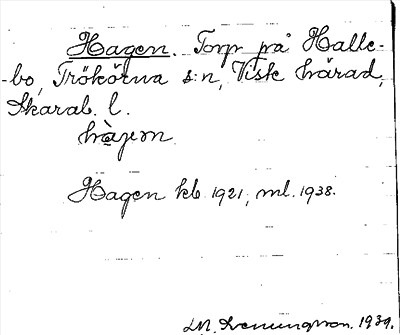 Hagen. Torp på Halle-
-bo, Trökörna s:n, Viste härad,
Skarab. l.
hàjen
Hagen kb 1921, ml. 1938.
1939.